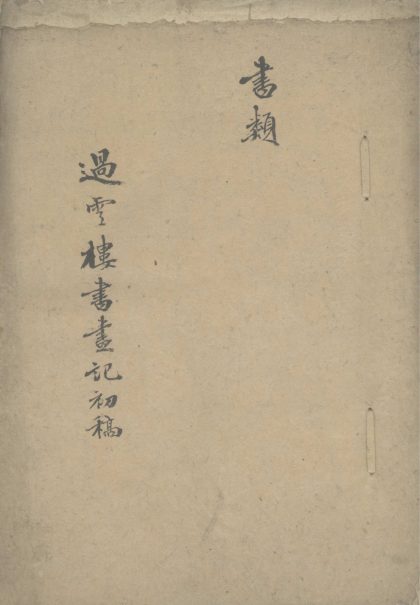 書類
過雲樓書畫記初稿